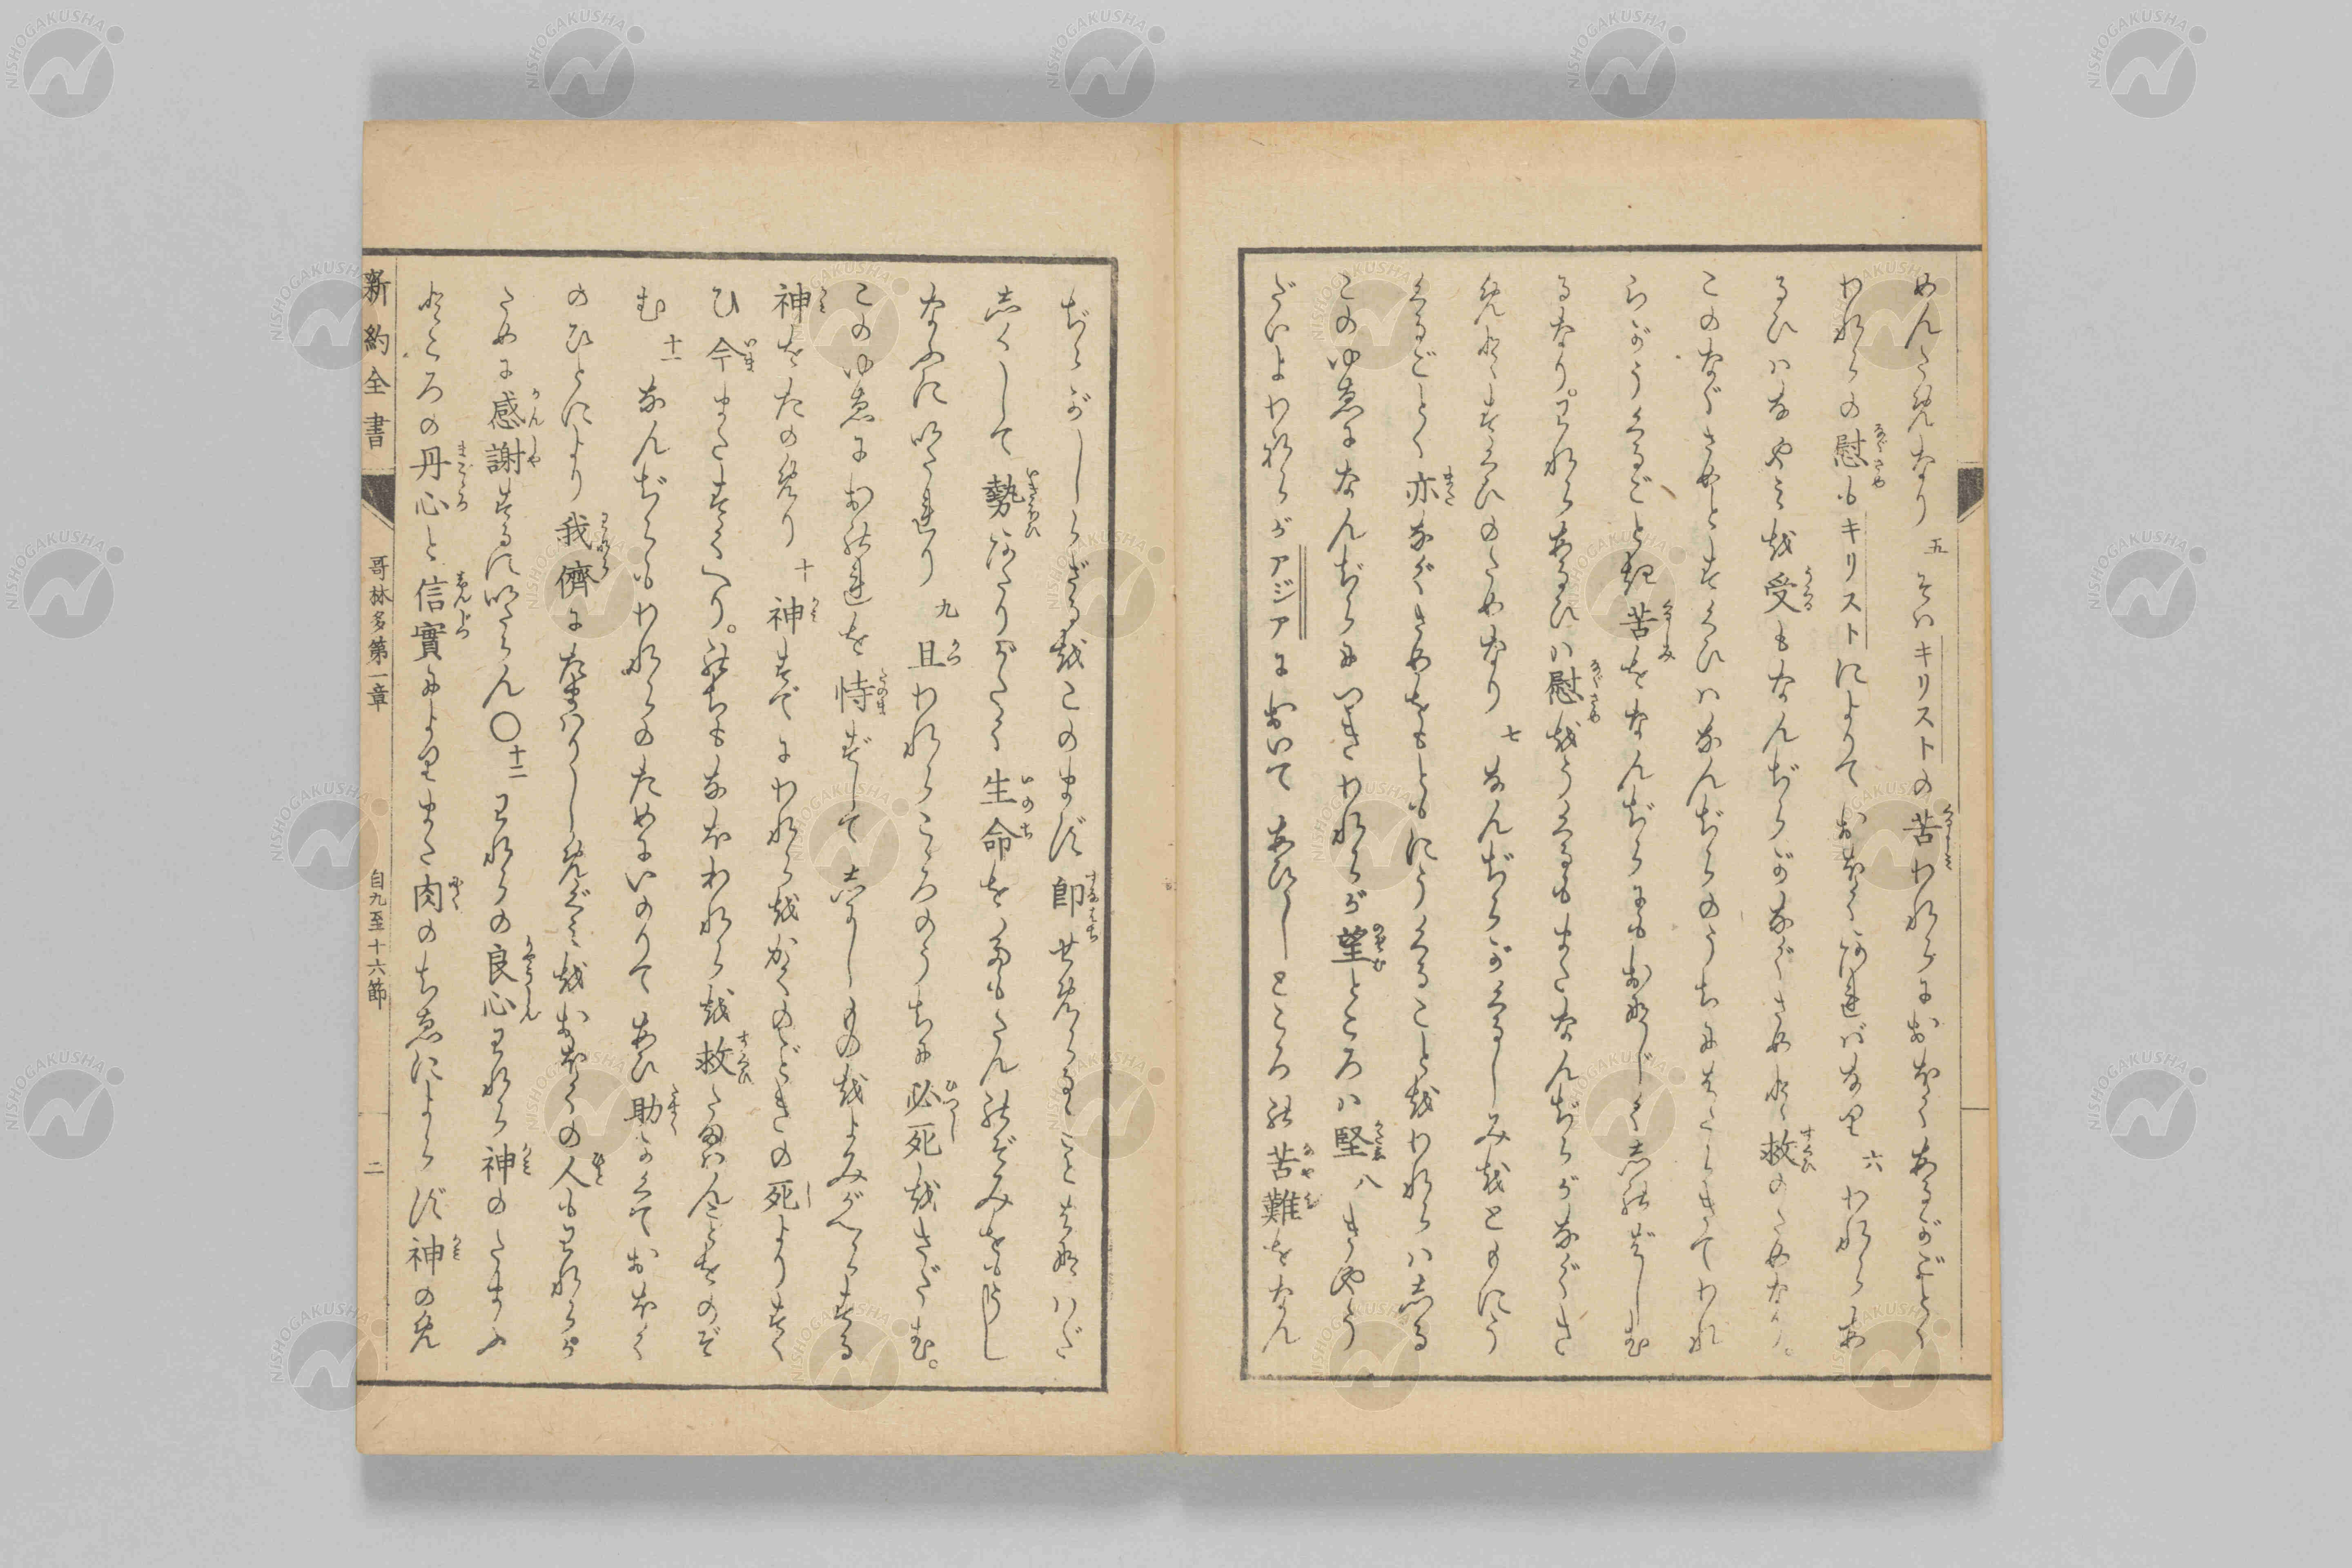 めんためなり 五 そハキリストの苦われらにおほくあるがごとく
われらの慰もキリストによりておほくあれバなり 六 われらあ
るひハなやみを受もなんぢらがなぐさめと救のためなり。
このなぐさめとすくひハなんぢらのうちにはたらきてわれ
らがうくるごとき苦をなんぢらにもおなじくしのばしむ
るなり。われらあるひハ慰をうくるもまたなんぢらがなぐさ
めとすくひのためなり 七 なんぢらがくるしみをともにう
くるごとく亦なぐさめをもともにうくることをわれらハしる
このゆゑになんぢらにつきわれらが望ところハ堅 八 きやう
だいよわれらがアジアにおいてあひしところの苦難をなん
ぢらがしらざるをこのまず即せめらるゝことはなハだ
しくして勢あたりがたく生命をたもたんのぞみをもうし
なふにいたれり 九 且われらこゝろのうちに必死をさだむ。
このゆゑにおのれを恃ずしてしにしものをよみがへらする
神をたのめり 十 神すでにわれらをかくのごときの死よりすく
ひ今またすくへり。のちもなほわれらを救たまはんことをのぞ
む 十一 なんぢらもわれらのためにいのりてあひ助かくておほく
のひとにより我儕にたまはりしめぐみをおほくの人もわれらが
ために感謝するにいたらん〇十二 われらの良心われら神のたまふ
ところの丹心と信實によりまた肉のちゑによらず神のめ
新約全書 哥林多第一章 自九至十六節 二